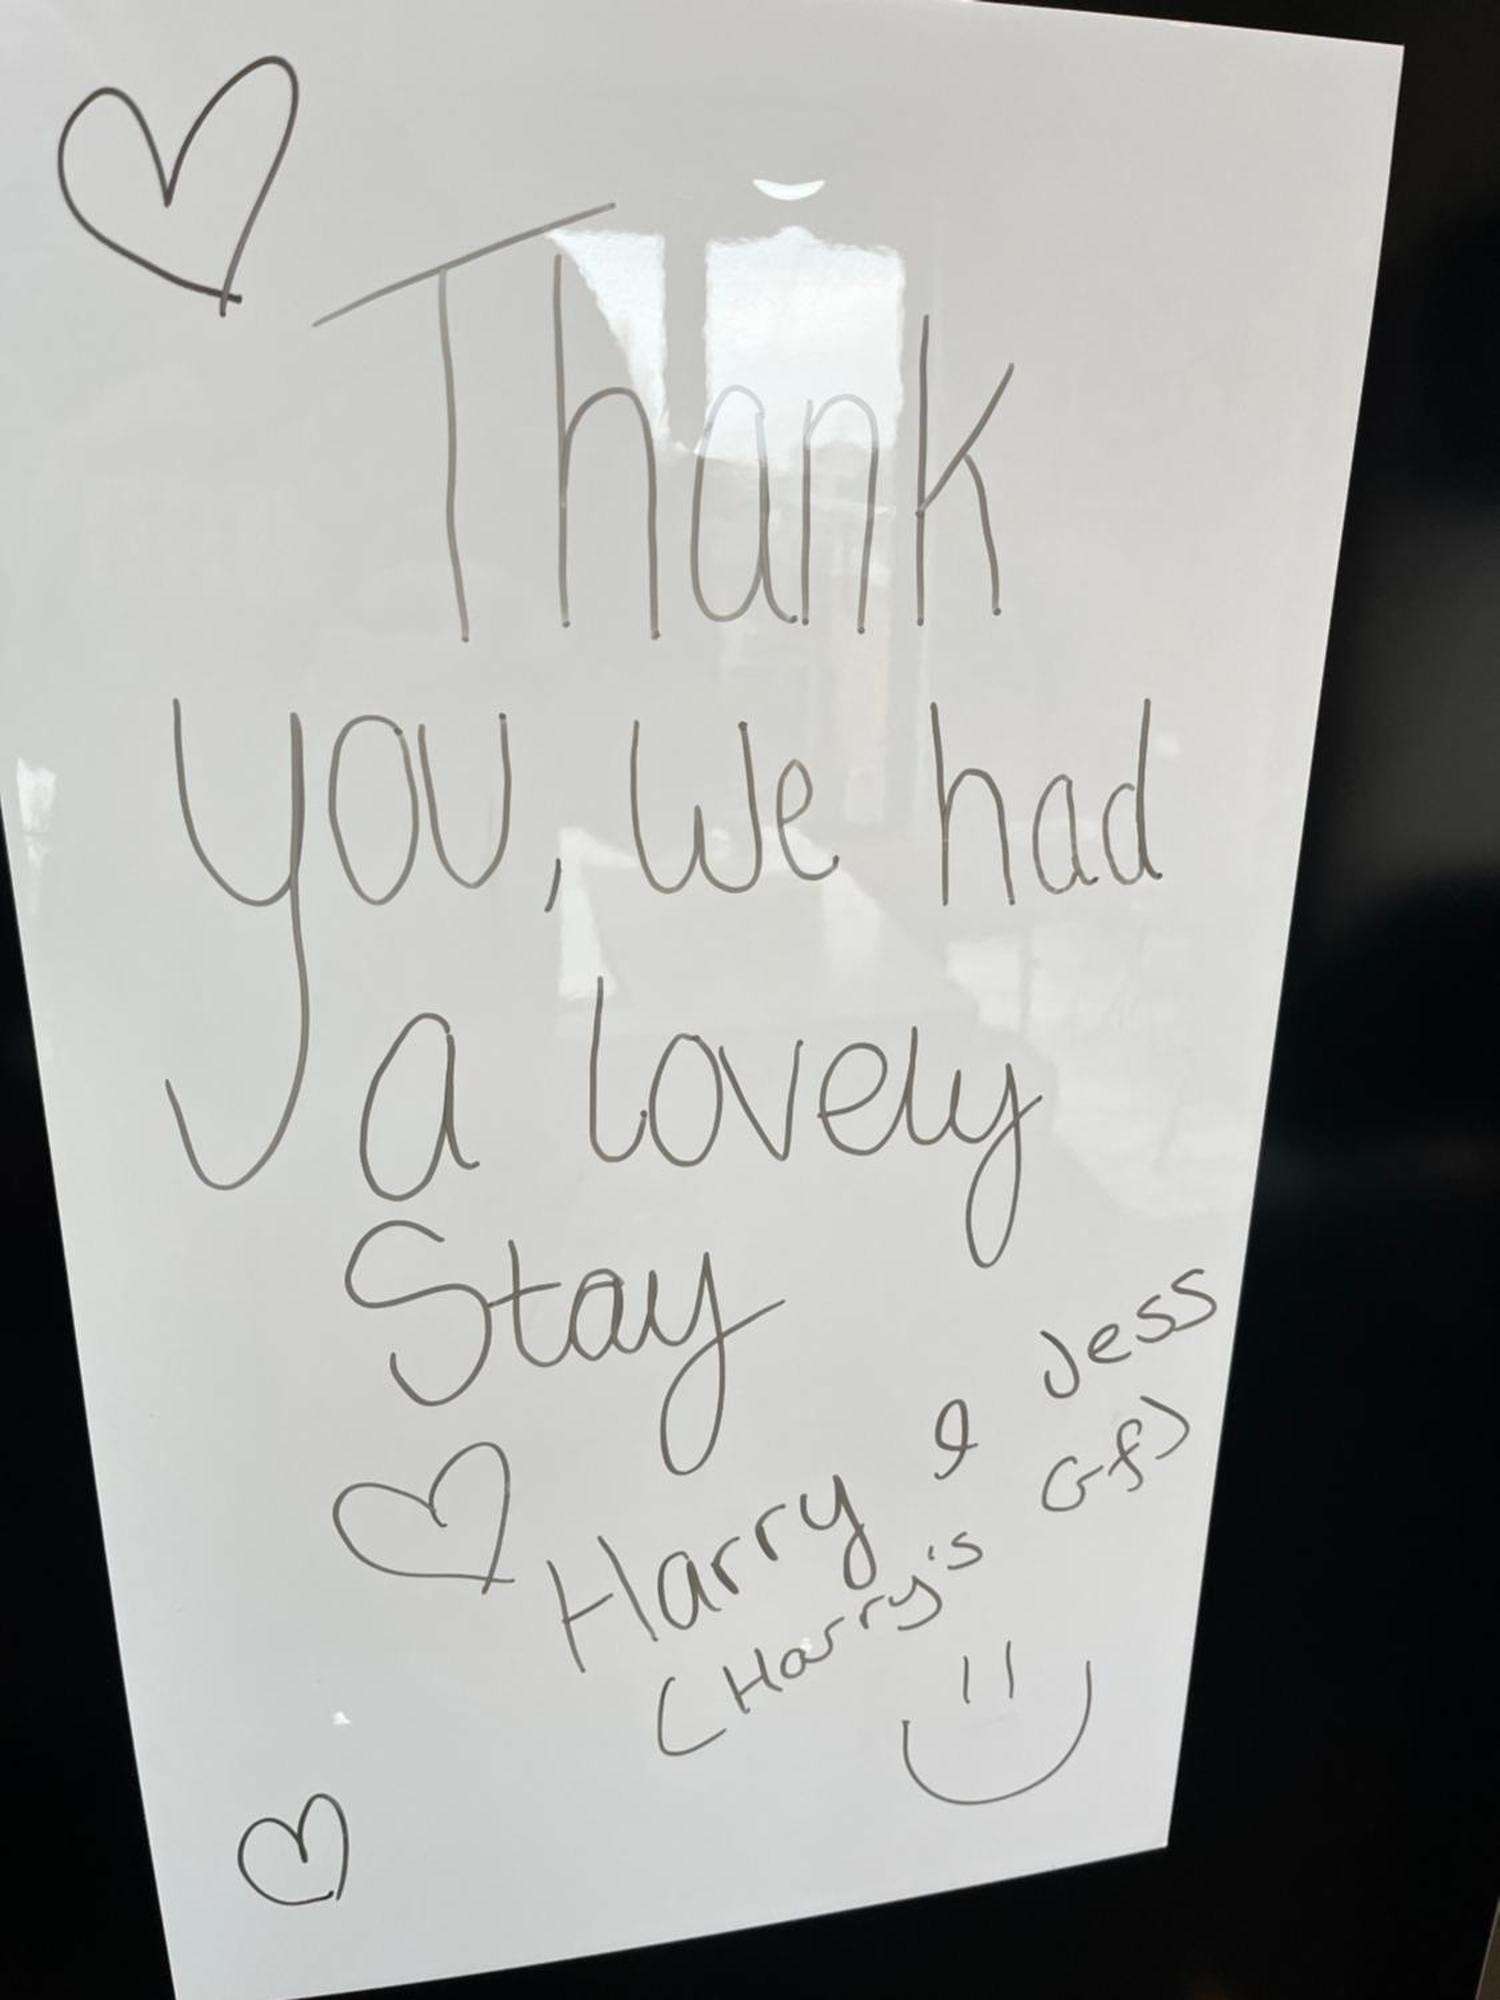 Thank
you, We had
a lovely
Stay
Harry & Jess
(Harry's Gf)